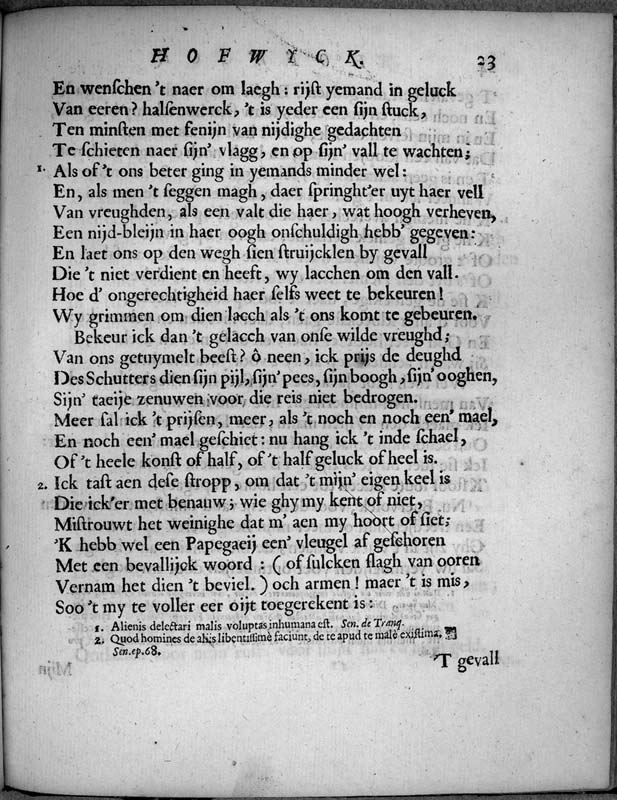 HOFWYCK. 23
En wenſchen 't naer om laegh: rijſt yemand in geluck
Van eeren? halſenwerck, 't is yeder een ſijn ſtuck,
Ten minſten met fenijn van nijdighe gedachten
Te ſchieten naer ſijn' vlagg, en op ſijn' vall te wachten;
1. Als of 't ons beter ging in yemands minder wel:
En, als men 't ſeggen magh, daer ſpringht'er uyt haer vell
Van vreughden, als een valt die haer, wat hoogh verheven,
Een nijd-bleijn in haer oogh onſchuldigh hebb' gegeven:
En laet ons op den wegh ſien ſtruijcklen by gevall
Die 't niet verdient en heeft, wy lacchen om den vall.
Hoe d' ongerechtigheid haer ſelfs weet te bekeuren!
Wy grimmen om dien lacch als 't ons komt te gebeuren.
Bekeur ick dan 't gelacch van onſe wilde vreughd;
Van ons getuymelt beeſt? ô neen, ick prijs de deughd
Des Schutters dien ſijn pijl, ſijn' pees, ſijn boogh, ſijn' ooghen,
Sijn' taeije zenuwen voor die reis niet bedrogen.
Meer ſal ick 't prijſen, meer, als 't noch en noch een' mael,
En noch een' mael geſchiet: nu hang ick 't inde ſchael,
Of 't heele konſt of half, of 't half geluck of heel is.
2. Ick taſt aen deſe ſtropp, om dat 't mijn' eigen keel is
Die ick'er met benauw; wie ghy my kent of niet,
Miſtrouwt het weinighe dat m' aen my hoort of ſiet;
'K hebb wel een Papegaeij een' vleugel af geſchoren
Met een bevallijck woord: (of ſulcken ſlagh van ooren
Vernam het dien 't beviel.) och armen! maer 't is mis,
Soo 't my te voller eer oijt toegerekent is:
1. Alienis delectari malis voluptas inhumana eſt. Sen. de Tranq.
2. Quod homines de aliis libentiſſimè faciunt, de te apud te malè exiſtima.
Sen. ep. 68.
'T gevall